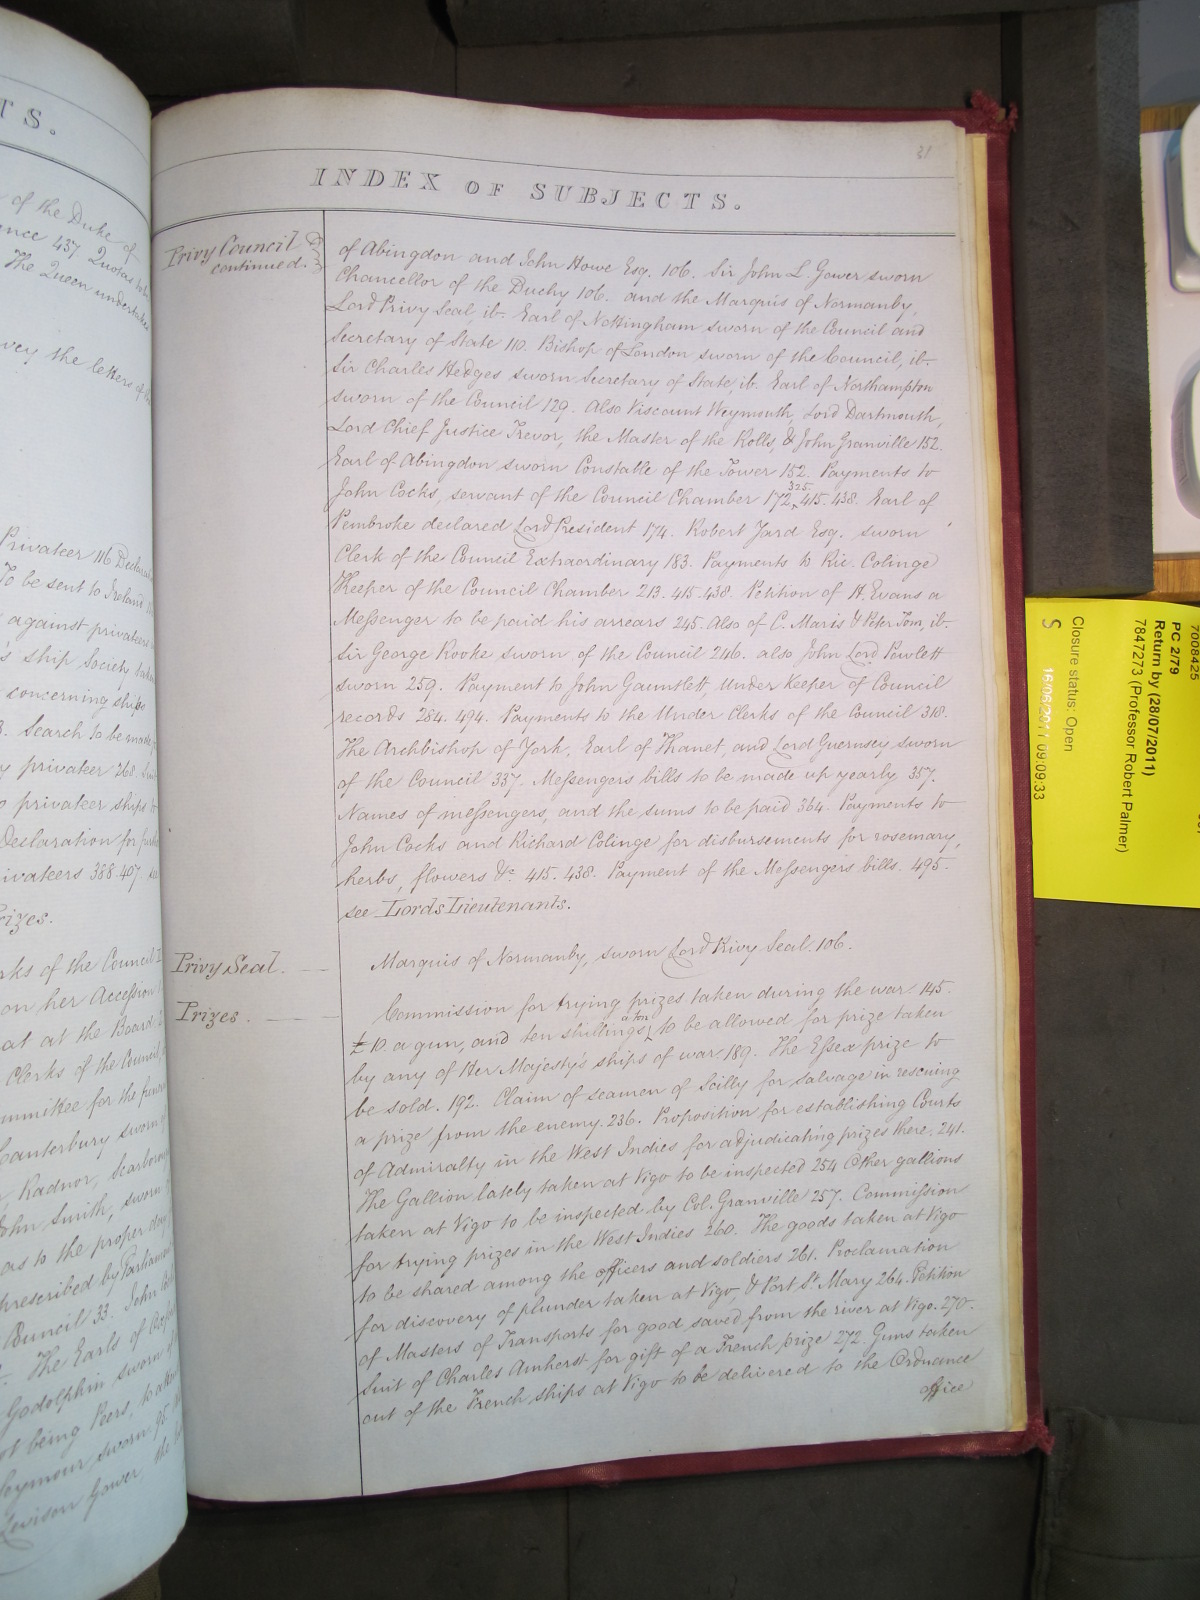 TS.
of the Duke of
ence 437 Quotas
The Queen undertakes
vey the letters of
Privateer 116
To be sent to Ireland
against privateers
's ship Society
concerning ships
Search to be made
y privateer 268
privateer ships
Declaration for
ivateers 388. 407.
rizes.
rks of the Council
on her Accession
at at the Board
Clerks of the Council
mmittee for the
Canterbury sworn
Radnor, Scarborough
ohn Smith, sworn
as to the proper day
prescribed by Parliament
Council 33. John
The Earls of
Godolphin sworn of
t being Peers, to
eymour sworn 95
Levison Gower, the
31
INDEX OF SUBJECTS.
Privy Council
continued.
of Abingdon and John Howe Esq. 106. Sir John L. Gower sworn
Chancellor of the Duchy 106. and the Marquis of Normanby,
Lord Privy Seal, ib. Earl of Nottingham sworn of the Council and
Secretary of State 110. Bishop of London sworn of the Council, ib.
Sir Charles Hedges sworn Secretary of State, ib. Earl of Northampton
sworn of the Council 129. Also Viscount Weymouth, Lord Dartmouth,
Lord Chief Justice Trevor, the Master of the Rolls, & John Granville 152.
Earl of Abingdon sworn Constable of the Tower 152. Payments to
John Cocks, servant of the Council Chamber 172. 325. 415. 438. Earl of
Pembroke declared Lord President 174. Robert Yard Esq. sworn
Clerk of the Council Extraordinary 183. Payments to Ric. Colinge
Keeper of the Council Chamber 213. 415. 438. Petition of H. Evans a
Messenger to be paid his arrears 245. Also of C. Maris & Peter Tom, ib.
Sir George Rooke sworn of the Council 246. also John Lord Powlett
sworn 259. Payment to John Gauntlett, Under Keeper of Council
records 284. 494. Payments to the Under Clerks of the Council 318.
The Archbishop of York, Earl of Thanet, and Lord Guernsey sworn
of the Council 337. Messengers bills to be made up yearly 357.
Names of messengers, and the sums to be paid 364. Payments to
John Cocks and Richard Colinge for disbursements for rosemary,
herbs, flowers &c. 415. 438. Payment of the Messengers bills. 495.
see Lords Lieutenants.
Privy Seal.
Marquis of Normanby, sworn Lord Privy Seal. 106.
Prizes.
Commission for trying prizes taken during the war. 145.
£10. a gun, and ten shillings a ton to be allowed for prize taken
by any of Her Majesty's ships of war 189. The Essex prize to
be sold. 192. Claim of seamen of Scilly for salvage in rescuing
a prize from the enemy. 236. Proposition for establishing Courts
of Admiralty in the West Indies for adjudicating prizes there. 241.
The Gallion lately taken at Vigo to be inspected 254 Other gallions
taken at Vigo to be inspected by Col. Granville 257. Commission
for trying prizes in the West Indies 260. The goods taken at Vigo
to be shared among the officers and soldiers 261. Proclamation
for discovery of plunder taken at Vigo, & Port St. Mary 264. Petition
of Masters of Transports for good saved from the river at Vigo. 270.
Suit of Charles Amherst for gift of a French prize 272. Guns taken
out of the French ships at Vigo to be delivered to the Ordnance
office
7008425
PC 2/79
Return by (28/07/2011)
7847273 (Professor Robert Palmer)
Closure status: Open
S
16/06/2011 09:09:33